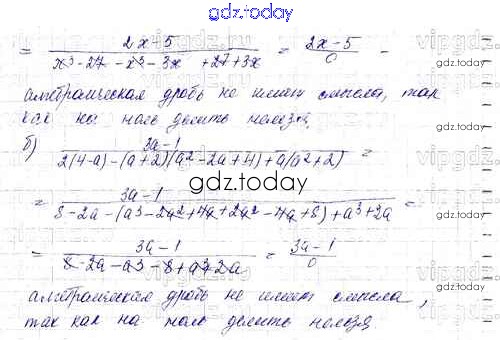 gdz.today
= 2x-5 / x³ - 27 - x³ - 3x + 27 + 3x = 2x-5 / 0 -
алгебраическая дробь не имеет смысла, так
как на ноль делить нельзя.
б) 3a-1 / 2(4-a) - (a+2)(a² - 2a + 4) + a(a² + 2) =
gdz.today
= 3a-1 / 8 - 2a - (a³ - 2a² + 4a + 2a² - 4a + 8) + a³ + 2a =
= 3a-1 / 8 - 2a - a³ - 8 + a³ + 2a = 3a-1 / 0
алгебраическая дробь не имеет смысла,
так как на ноль делить нельзя.
gdz.today